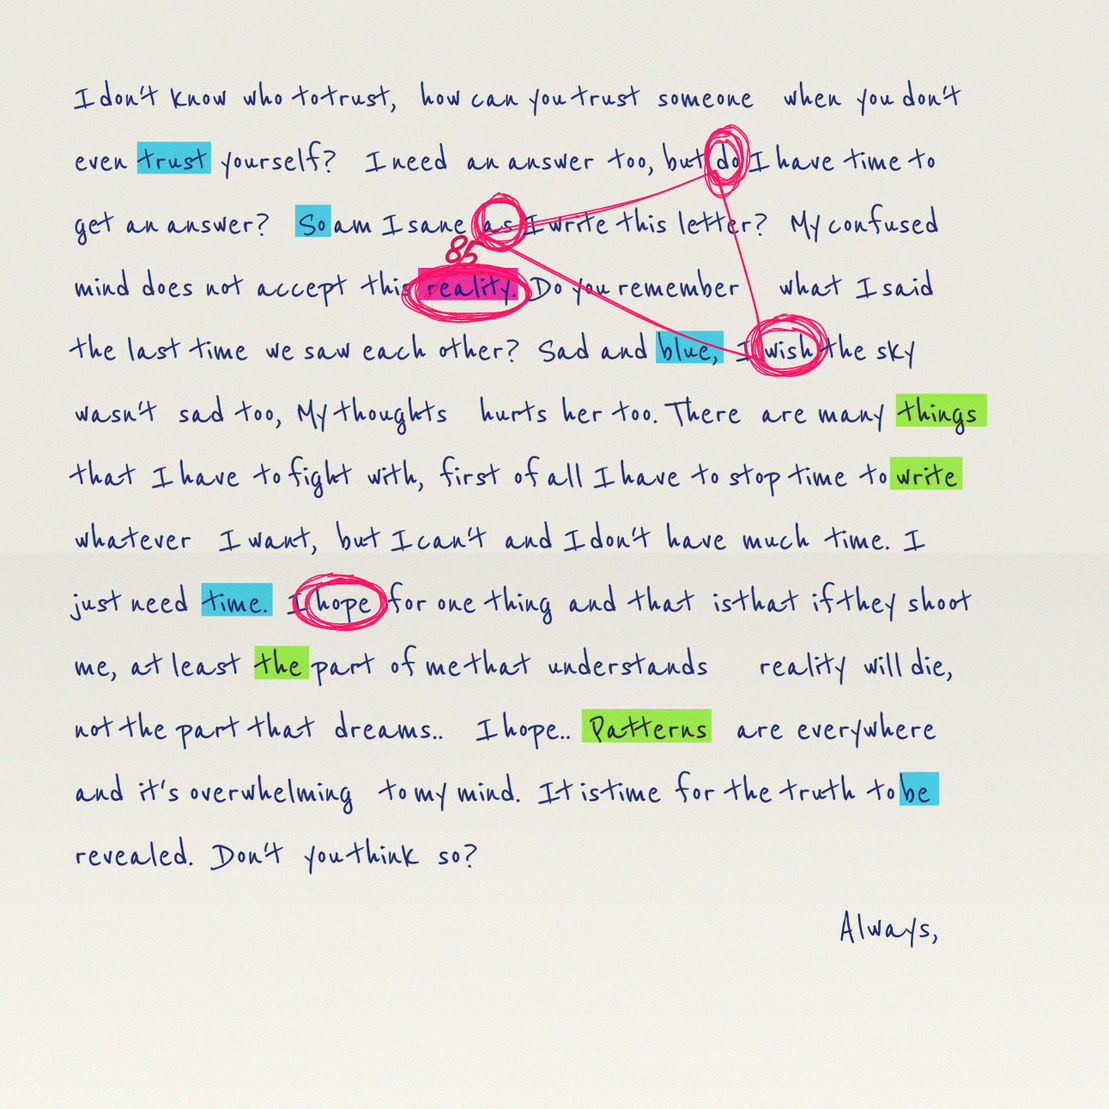 I don't know who to trust, how can you trust someone when you don't
even trust yourself? I need an answer too, but do I have time to
get an answer? So am I sane as I write this letter? My confused
85
mind does not accept this reality. Do you remember what I said
the last time we saw each other? Sad and blue, I wish the sky
wasn't sad too, My thoughts hurts her too. There are many things
that I have to fight with, first of all I have to stop time to write
whatever I want, but I can't and I don't have much time. I
just need time. I hope for one thing and that is that if they shoot
me, at least the part of me that understands reality will die,
not the part that dreams.. I hope.. Patterns are everywhere
and it's overwhelming to my mind. It is time for the truth to be
revealed. Don't you think so?
Always,